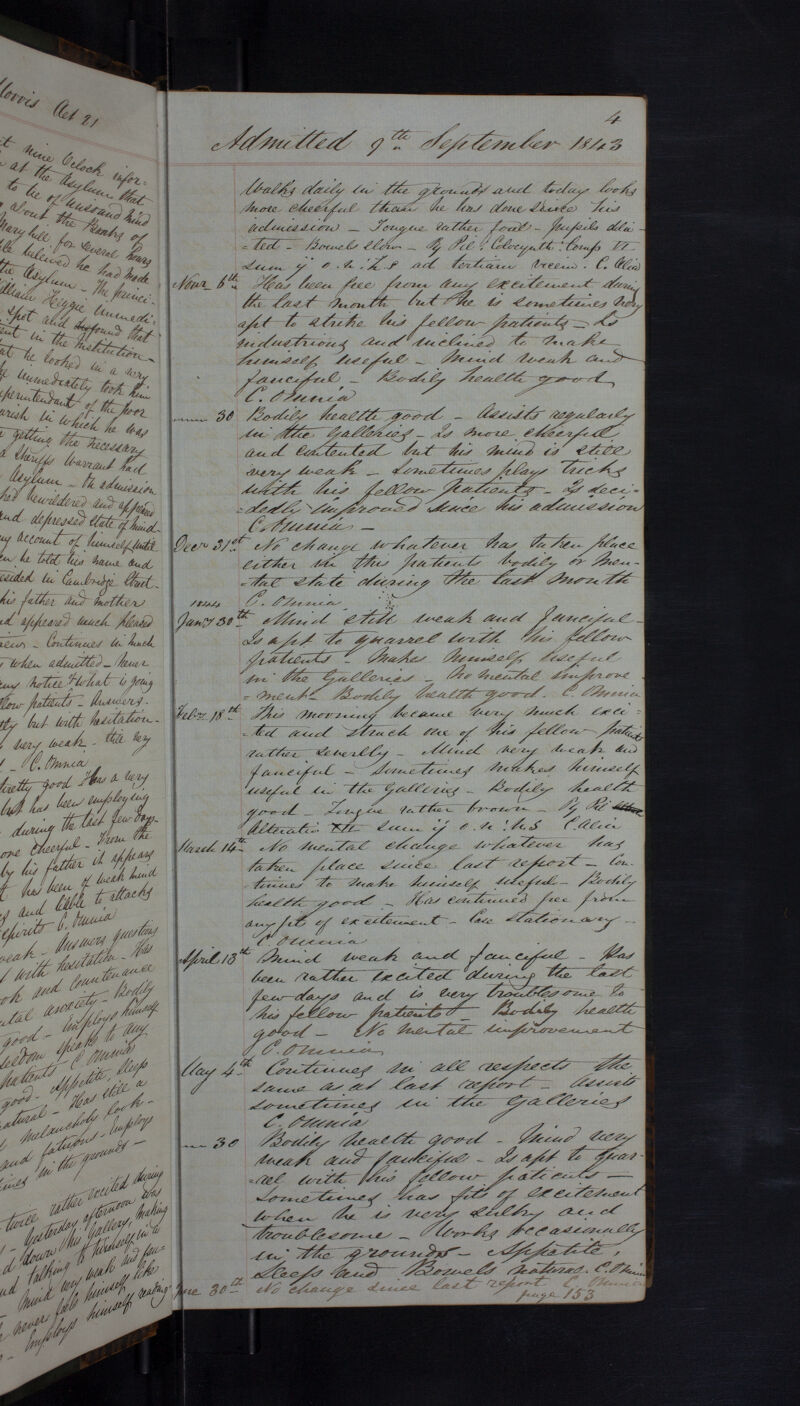 Morris Aet 21
t nine O'clock infor-
at the Asylum that
to be of unsound mind
about the Banks of
Maryhill, for several hours
believed he had made
the Asylum - The
William Heggie immedi-
spot and found that
ent in the Institution -
at he looked in a very
he immediately took him
Superintendant of the poor
parish in which he was
getting the necessary
a Sheriffs Warrant had
Asylum - On admission
had bewildered and appeared
and depressed state of mind -
any account of himself until
en he told his name and
resided in Cambridge Street -
his father and mother
nd appeared much pleased
Continues in much
when admitted - Never
any notice of what is going
fellow patients - Answers
but with hesitation -
very weak -
C. Omnia
pretty good - Has a very
but has been employing
during the last few days -
more cheerful - From the
by his father it appears
has been of weak mind
and liable to attacks
spirits C. Omnia
weak - Answers questions
with hesitation - Has
look and countenance
mental anxiety - Bodily
good - Employs himself
seldom speaks to any
patients C Omnia
good - Appetite, Sleep
natural - Has still a
melancholy look -
and fatuous - Employs
times in the grounds -
twice rather excited during
Yesterday afternoon was
down his Gallery, making
and talking to himself in a
Mind very weak and fan-
never
Employs himself reading
4
Admitted 9th September 1843
Walks daily in the grounds and today looks
more cheerful than he has done since his
admission - Tongue rather foul - pupils dila-
=ted - Bowels slow - Rx Pil: Colocynth: Comp VI
Sum ij o. n: h.s ad tertiam vicem. C. Alia
Novr 6th Has been free from any excitement during
the last month but he is sometimes very
apt to strike his fellow patients - Is
industrious and inclined to make
himself useful - Mind weak and
fanciful - Bodily health good
C. Omnia
30 Bodily health good - Assists regularly
in the Galleries - Is more cheerful
and contented but his mind is still
very weak - Sometimes plays tricks
with his fellow patients - Is deci-
=dedly improved since his admission
C. Omnia -
Decr 31st No change whatever has taken place
either in this patients bodily or men-
-tal state during the last month
C. Omnia
1844
Jany 30th Mind still weak and fanciful -
Is apt to quarrel with his fellow
patients - Makes himself useful
in the Galleries - No mental improve-
=ment - Bodily health good. C. Omnia
Feby 18th This morning became very much exci-
=ted and struck one of his fellow patients
rather severely - Mind very weak and
fanciful - Sometimes makes himself
useful in the Galleries - Bodily health
good - Tongue rather brown - Rx Pil
Alteratio Sum ij o. n: h.s C Alia
March 14th No mental change whatever has
taken place since last report - Con-
tinues to make himself useful - Bodily
health good - Has continued free from
any fits of excitement - Case stationary -
C Omnia
April 13th Mind weak and fanciful - Has
been rather excited during the last
few days and is very troublesome to
his fellow patients - Bodily health
good - No mental improvement
C. Omnia
May 4th Continues in all respects the
same as at last report - Assists
sometimes in the Galleries
C. Omnia
30 Bodily health good - Mind very
weak and fanciful - Is apt to quar-
=rel with his fellow patients -
Sometimes has fits of excitement
when he is very sulky and
troublesome - Works occasionally
in the grounds - Appetite,
Sleep and Bowels natural. C. Omnia
June 30th No change since last report C. Omnia
page 153